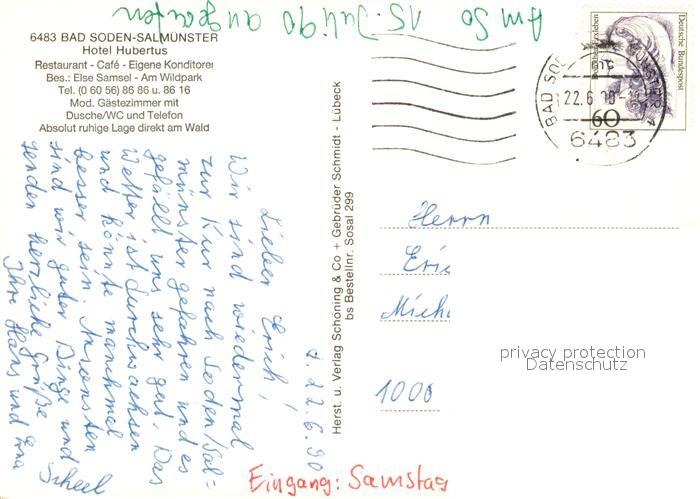 Am So 15. Juli 90 angerufen
6483 BAD SODEN-SALMÜNSTER
Hotel Hubertus
Restaurant - Café - Eigene Konditorei
Bes.: Else Samsel - Am Wildpark
Tel. (0 60 56) 86 86 u. 86 16
Mod. Gästezimmer mit
Dusche/WC und Telefon
Absolut ruhige Lage direkt am Wald
d. 22.6.90
Lieber Erich,
Wir sind wiedermal
zur Kur nach Soden/Sal-
münster gefahren und es
gefällt uns sehr gut. Das
Wetter ist durchwachsen
und könnte manchmal
besser sein. Ansonsten
sind wir guter Dinge und
senden herzliche Grüße
Ihre Hans und Erna
Scheel
Herst. u. Verlag Schöning & Co + Gebrüder Schmidt - Lübeck
bs Bestellnr. Sosal 299
Deutsche Bundespost
60
BAD SOD
22.6.90
6483
Herrn
Eric
Mich
1000
privacy protection
Datenschutz
Eingang: Samstag